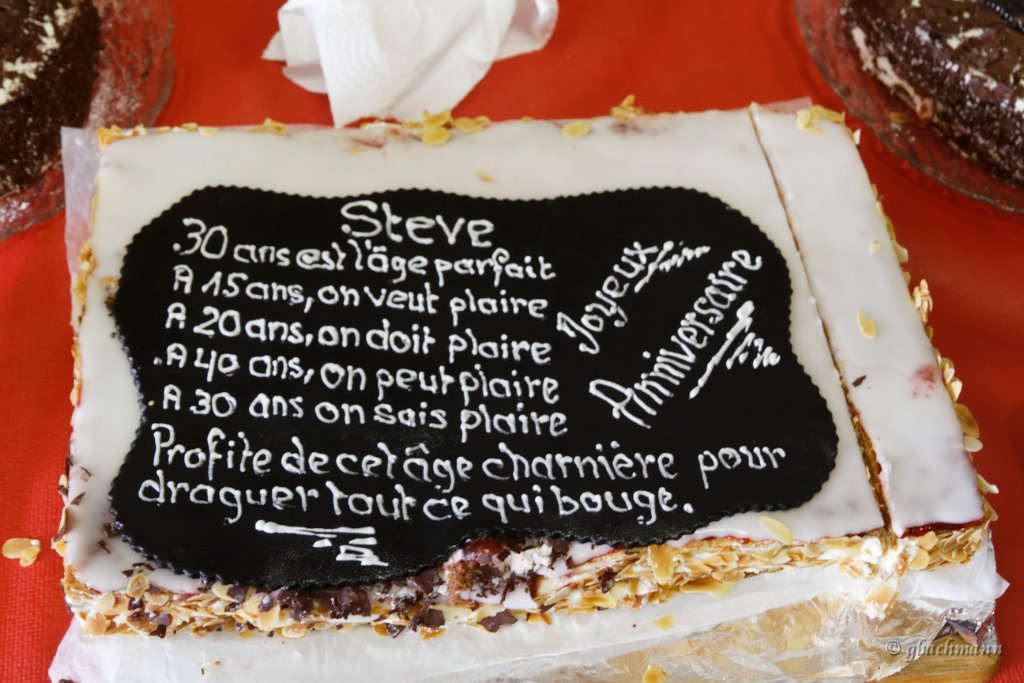 Steve
30 ans est l'âge parfait
A 15 ans, on veut plaire
A 20 ans, on doit plaire
A 40 ans, on peut plaire
A 30 ans on sais plaire
Profite de cet âge charnière pour
draguer tout ce qui bouge.
Joyeux
Anniversaire
© gbachmann